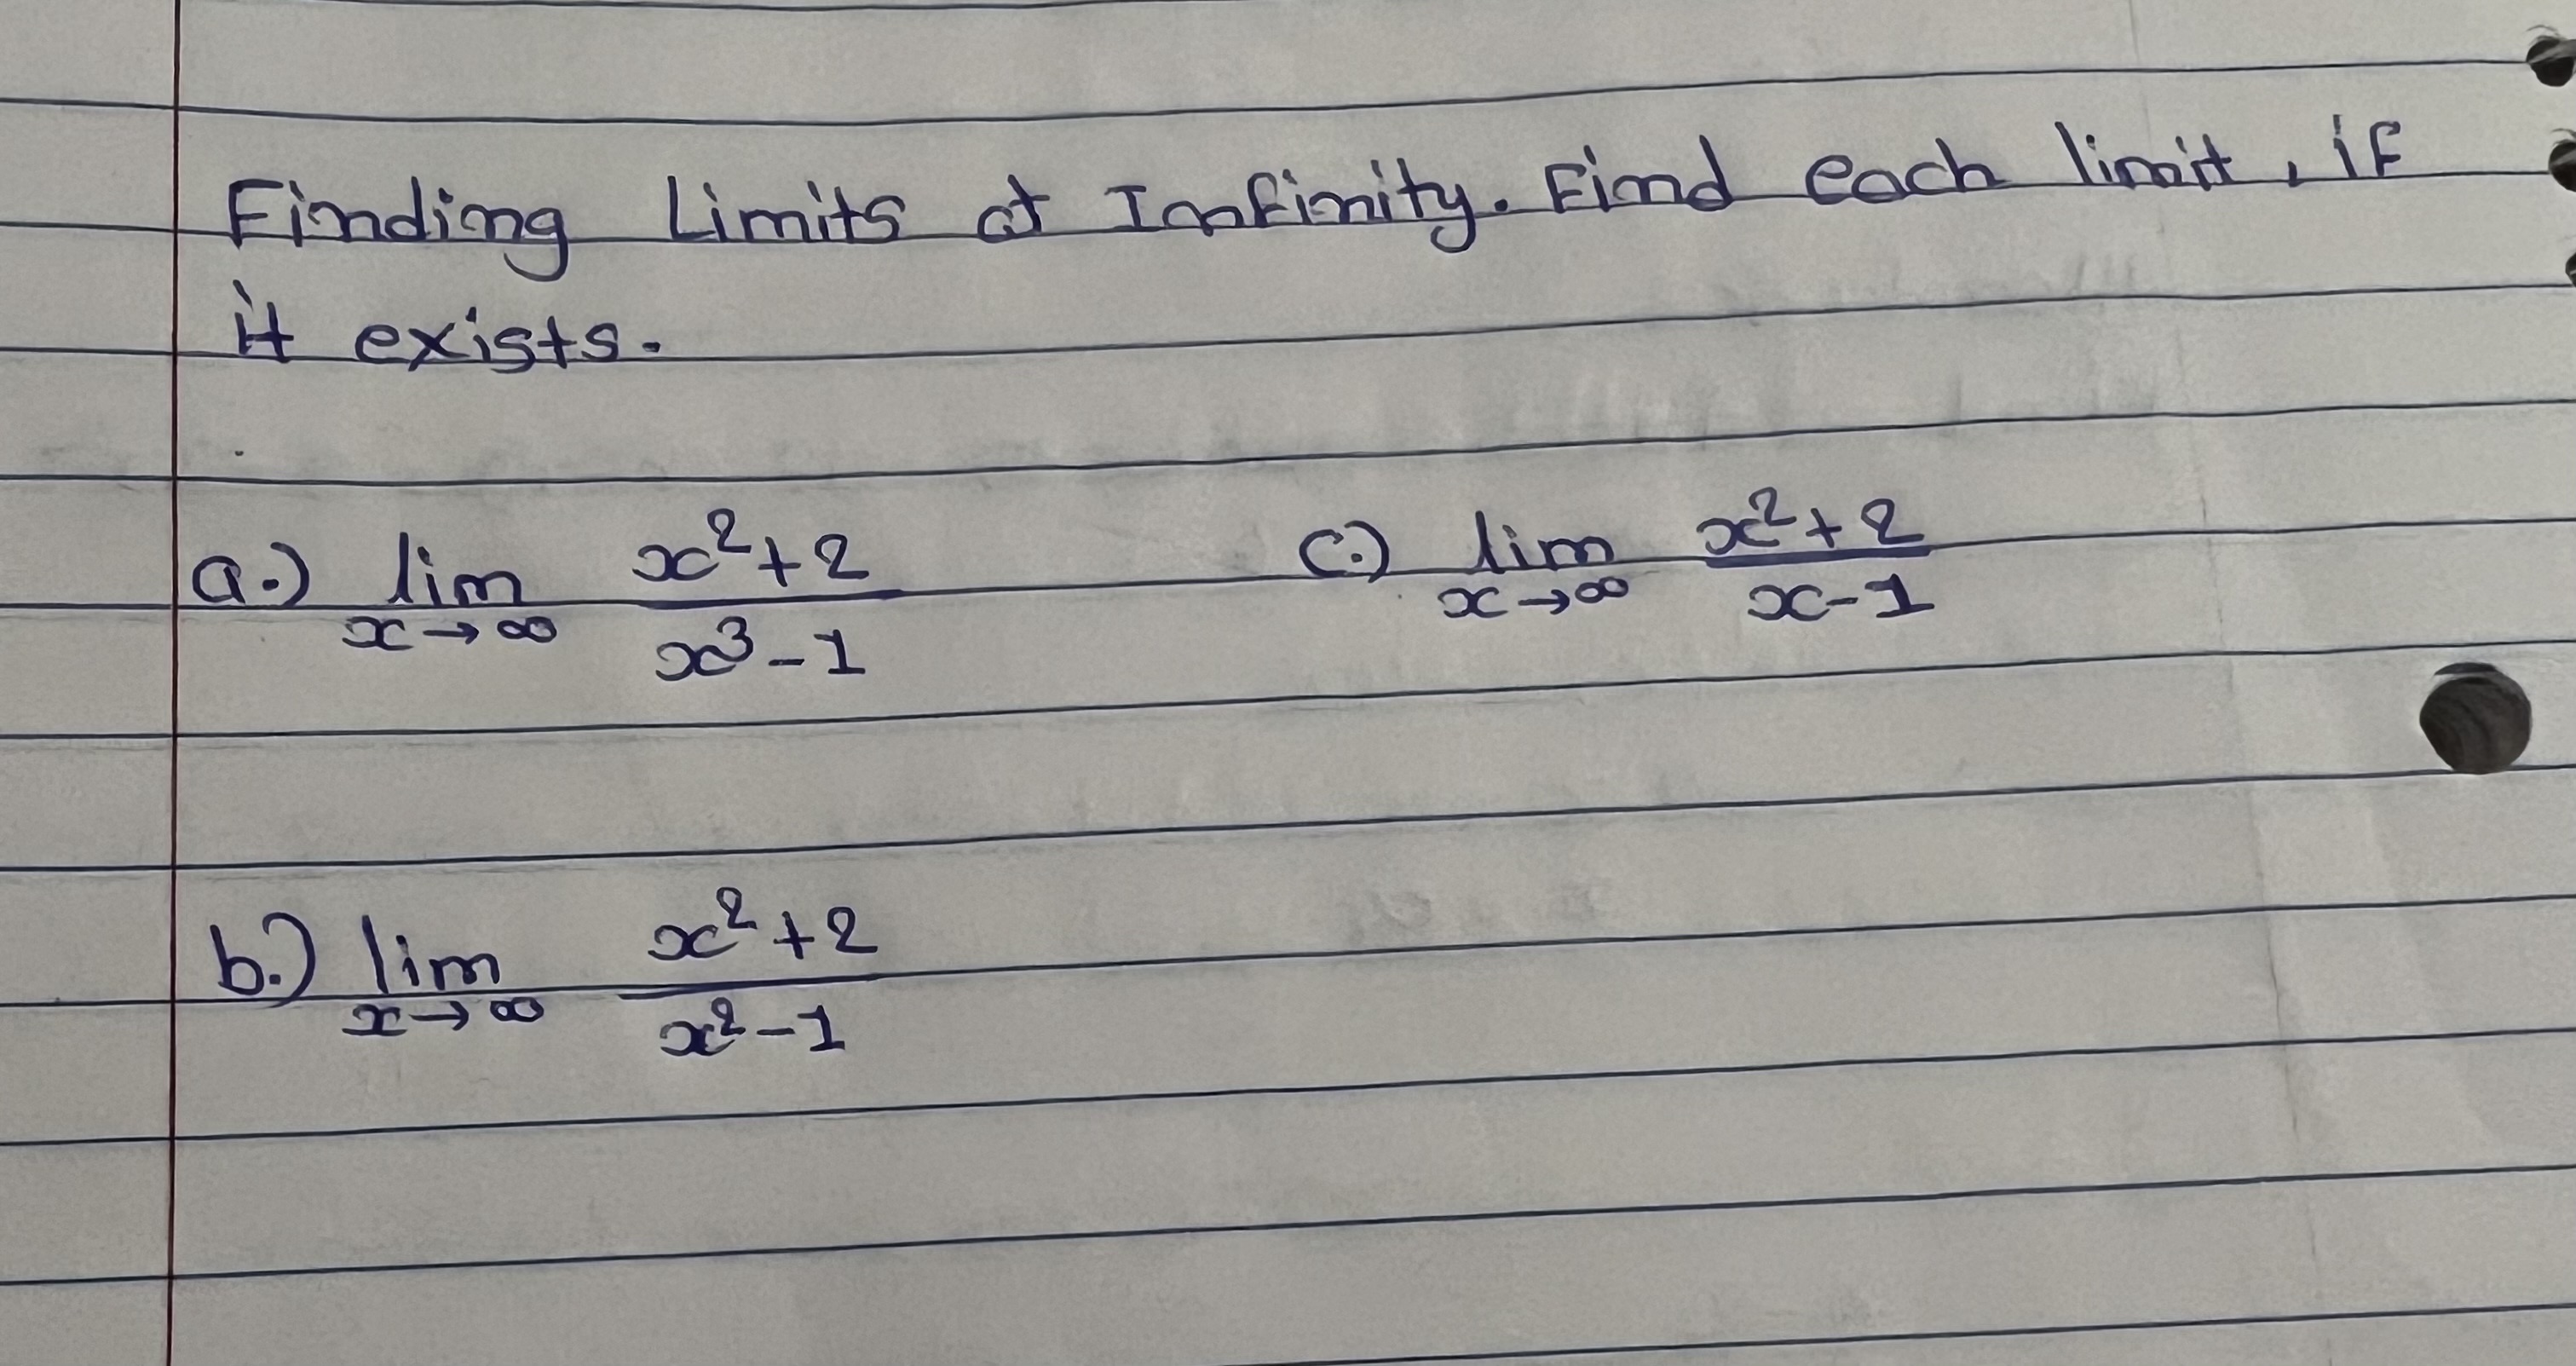 Finding Limits at Infinity. Find each limit, if
it exists.
a.) lim x→∞ (x²+2)/(x³-1)
c.) lim x→∞ (x²+2)/(x-1)
b.) lim x→∞ (x²+2)/(x²-1)